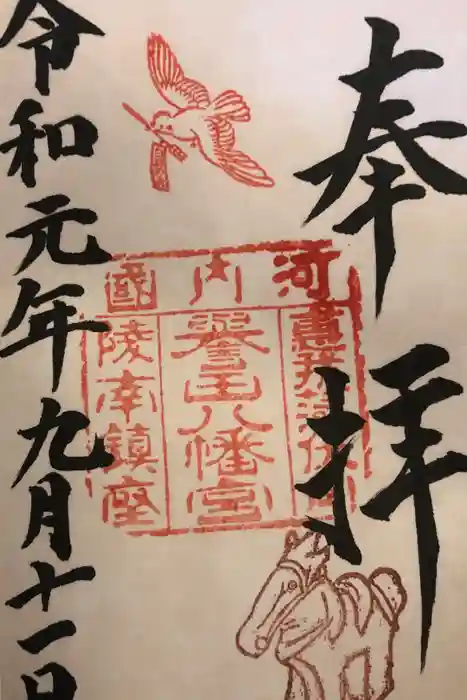 奉拝
河内國
譽田八幡宮
陵南鎮座
令和元年九月十一日